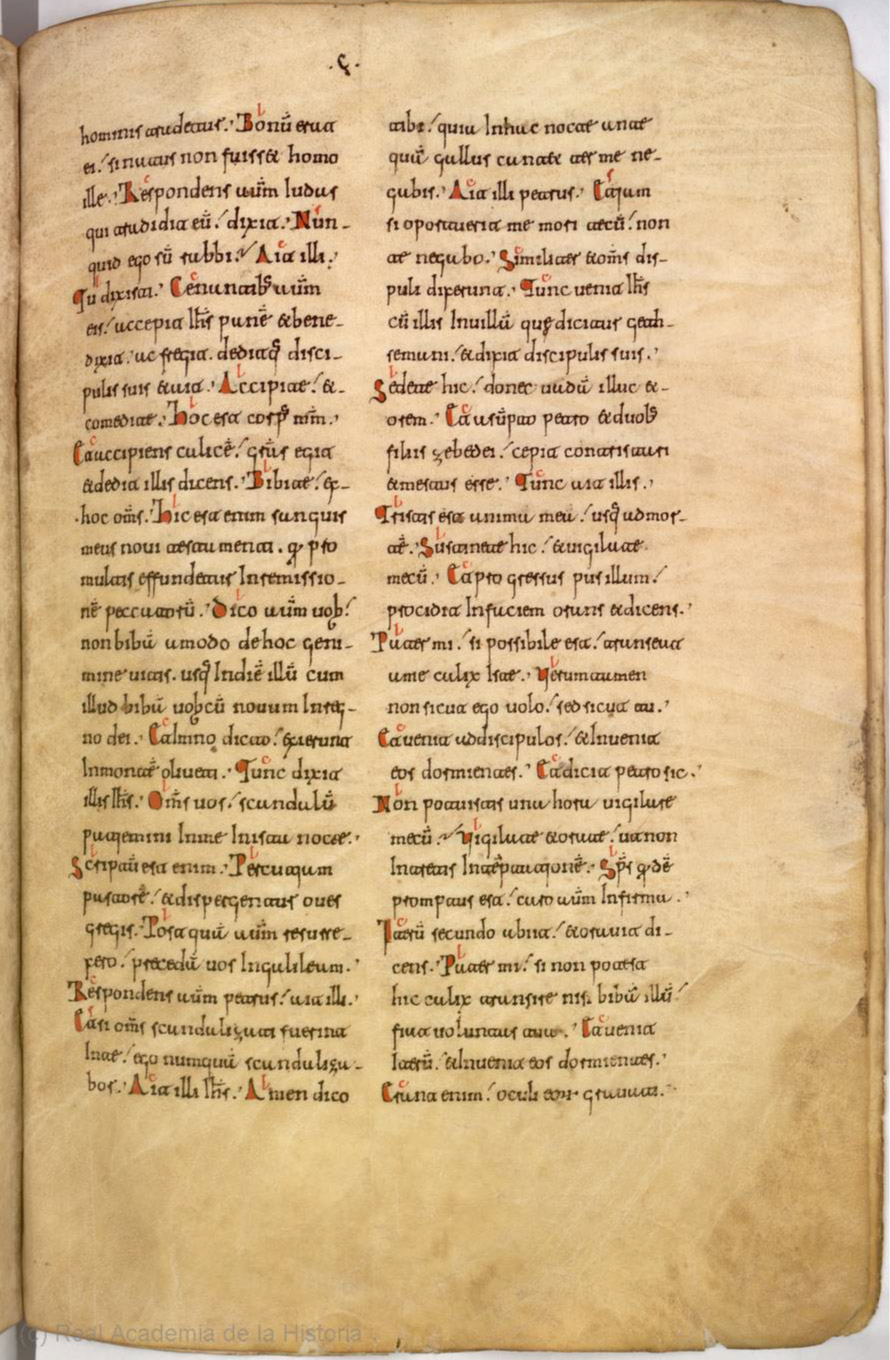 hominis tradetur. Bonū erat
ei si natus non fuisset homo
ille. Respondens aūm Iudas
qui tradidit eū dixit. Nun-
quid ego sū rabbi. Ait illi.
Tu dixisti. Cenantibꝰ aūm
eis accepit Ihs̄ panē & bene-
dixit. ac fregit. deditqꝫ disci-
pulis suis & ait. Accipite &-
comedite. Hoc est corpꝰ mm̄.
Et accipiens calicē grās egit
& dedit illis dicens. Bibite ex-
hoc om̄s. Hic est enim sanguis
meus novi testamenti. q̄ pro
multis effundetur In remissio-
nē peccatorū. Dico aūm vob
non bibā amodo de hoc geni-
mine vitis. usqꝫ In diē illū cum
illud bibā vobcū novum In reg-
no dei. Et Imno dicto exierunt
In montē oliveti. Tunc dixit
illis Ihs̄. Om̄s vos scandalū
patiemini In me In ista nocte.
Scriptū est enim. Percutiam
pastorē & dispergentur oves
gregis. Postquā aūm resurre-
xero precedā vos In galileam.
Respondens aūm petrus ait illi.
Et si om̄s scandalizati fuerint
In te ego numquā scandaliza-
bor. Ait illi Ihs̄. Amen dico
tibi quia In hac nocte ante
quā gallus cantet ter me ne-
gabis. Ait illi petrus. Etiam
si oportuerit me mori tecū non
te negabo. Similiter & om̄s dis-
puli dixerunt. Tunc venit Ihs̄
cū illis In villā quę dicitur geth-
semani. & dixit discipulis suis.
Sedete hic donec vadā illuc &-
orem. Et assūpto petro & duobꝰ
filiis zebedei cepit contristari
& mestus esse. Tunc ait illis.
Tristis est anima mea usqꝫ ad mor-
tē. Sustinete hic & vigilate
mecū. Et progressus pusillum
procidit In faciem orans & dicens.
Pater mi si possibile est transeat
a me calix Iste. Verumtamen
non sicut ego volo sed sicut tu.
Et venit ad discipulos & Invenit
eos dormientes. Et dicit petro sic.
Non potuistis una hora vigilare
mecū. Vigilate & orate ut non
Intretis In temptationē. Sps̄ q̄dē
promptus est caro aūm Infirma.
Iterū secundo abiit & oravit di-
cens. Pater mi si non potest
hic calix transire nisi bibā illū
fiat voluntas tua. Et venit
Iterū & Invenit eos dormientes.
Erant enim oculi eorum gravati.
(c) Real Academia de la Historia